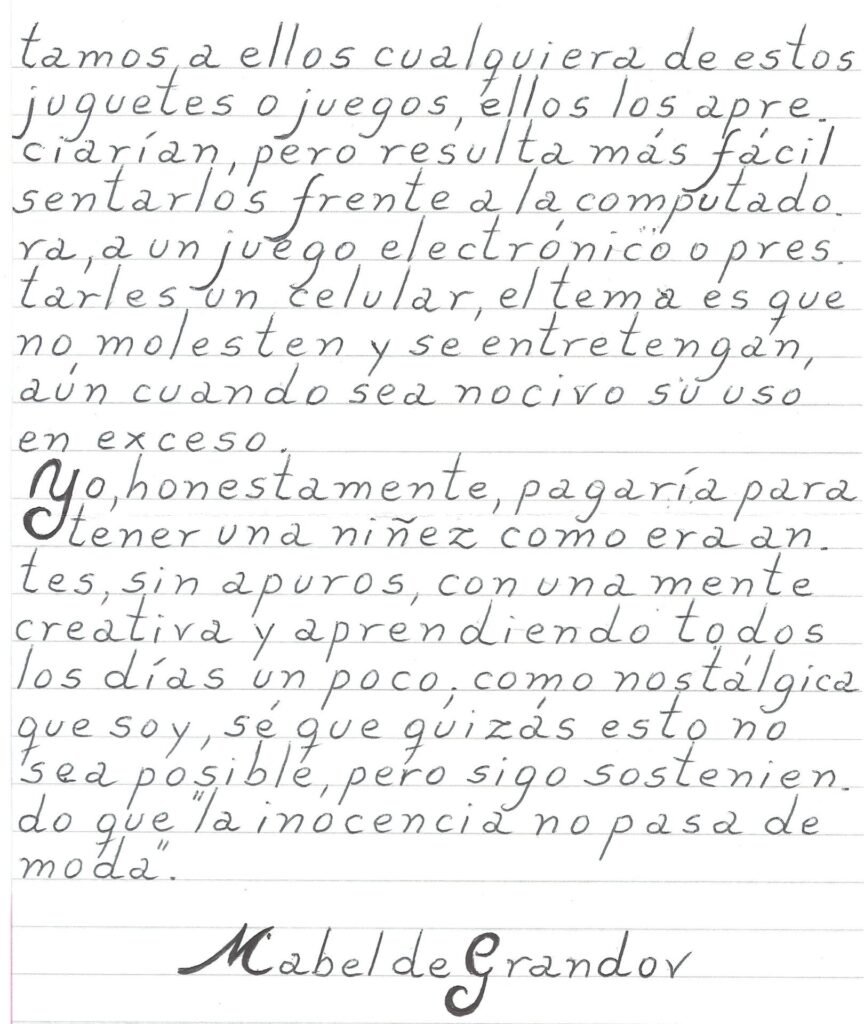 tamos a ellos cualquiera de estos
juguetes o juegos, ellos los apre.
ciarían, pero resulta más fácil
sentarlos frente a la computado.
ra, a un juego electrónico o pres.
tarles un celular, el tema es que
no molesten y se entretengan,
aún cuando sea nocivo su uso
en exceso.
Yo, honestamente, pagaría para
tener una niñez como era an.
tes, sin apuros, con una mente
creativa y aprendiendo todos
los días un poco; como nostálgica
que soy, sé que quizás esto no
sea posible, pero sigo sostenien.
do que "la inocencia no pasa de
moda".
Mabel de Grandov